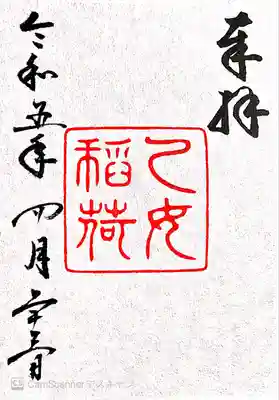 奉拝
乙女
稲荷
令和五年 四月二十三日
CamScanner でスキャン